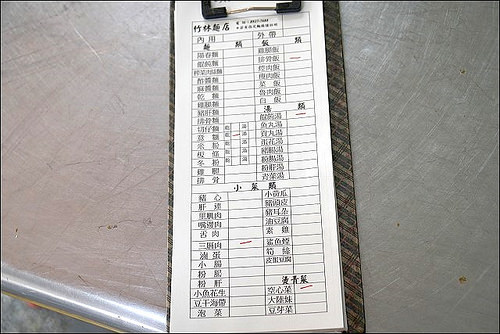 竹林麵店
內用 外帶
麵類 飯類
陽春麵 雞腿飯
餛飩麵 排骨飯
榨菜肉絲麵 焢肉飯
酢醬麵 瘦肉飯
麻醬麵 菜飯
乾麵 魯肉飯
雞腿麵 白飯
豬肝麵 湯類
排骨麵 餛飩湯
切仔麵 魚丸湯
意麵 貢丸湯
米粉 蛋花湯
粄條 豬腸湯
冬粉 粉腸湯
雞腿 粉肝湯
排骨 青菜湯
小菜類
豬心 小黃瓜
肝連 豬頭皮
里肌肉 豬耳朵
嘴邊肉 油豆腐
舌肉 素雞
三層肉 鯊魚煙
滷蛋 筍絲
小腸 皮蛋豆腐
粉腸
粉肝 燙青菜
小魚花生 空心菜
豆干海帶 大陸妹
泡菜 豆芽菜